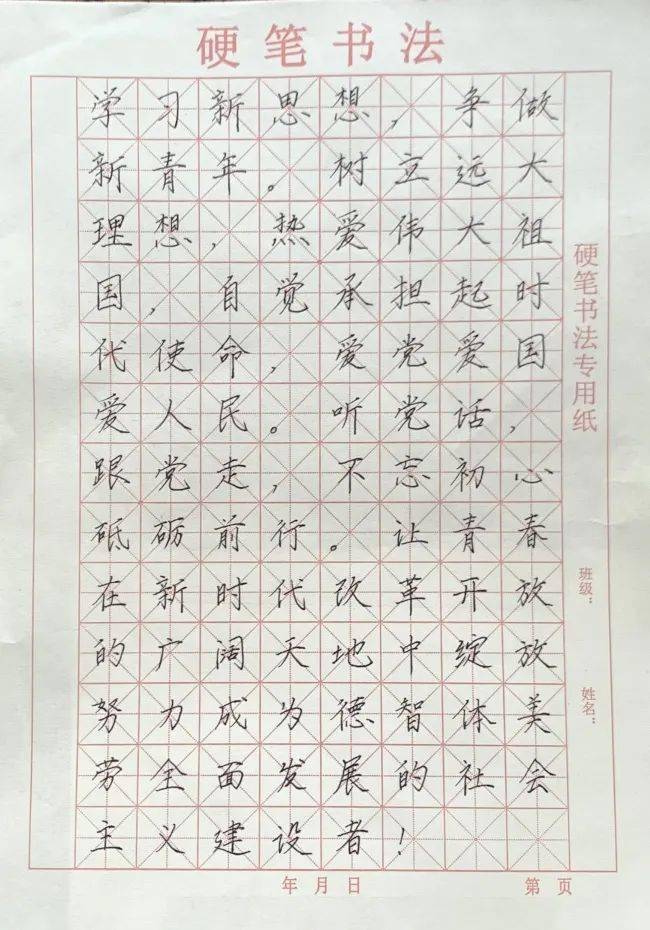 硬笔书法
学习新思想，争做
新青年。树立远大
理想，热爱伟大祖
国，自觉承担起时
代使命，爱党爱国
爱人民。听党话，
跟党走，不忘初心
砥砺前行。让青春
在新时代改革开放
的广阔天地中绽放
努力成为德智体美
劳全面发展的社会
主义建设者！
硬笔书法专用纸
班级：
姓名：
年月日
第页